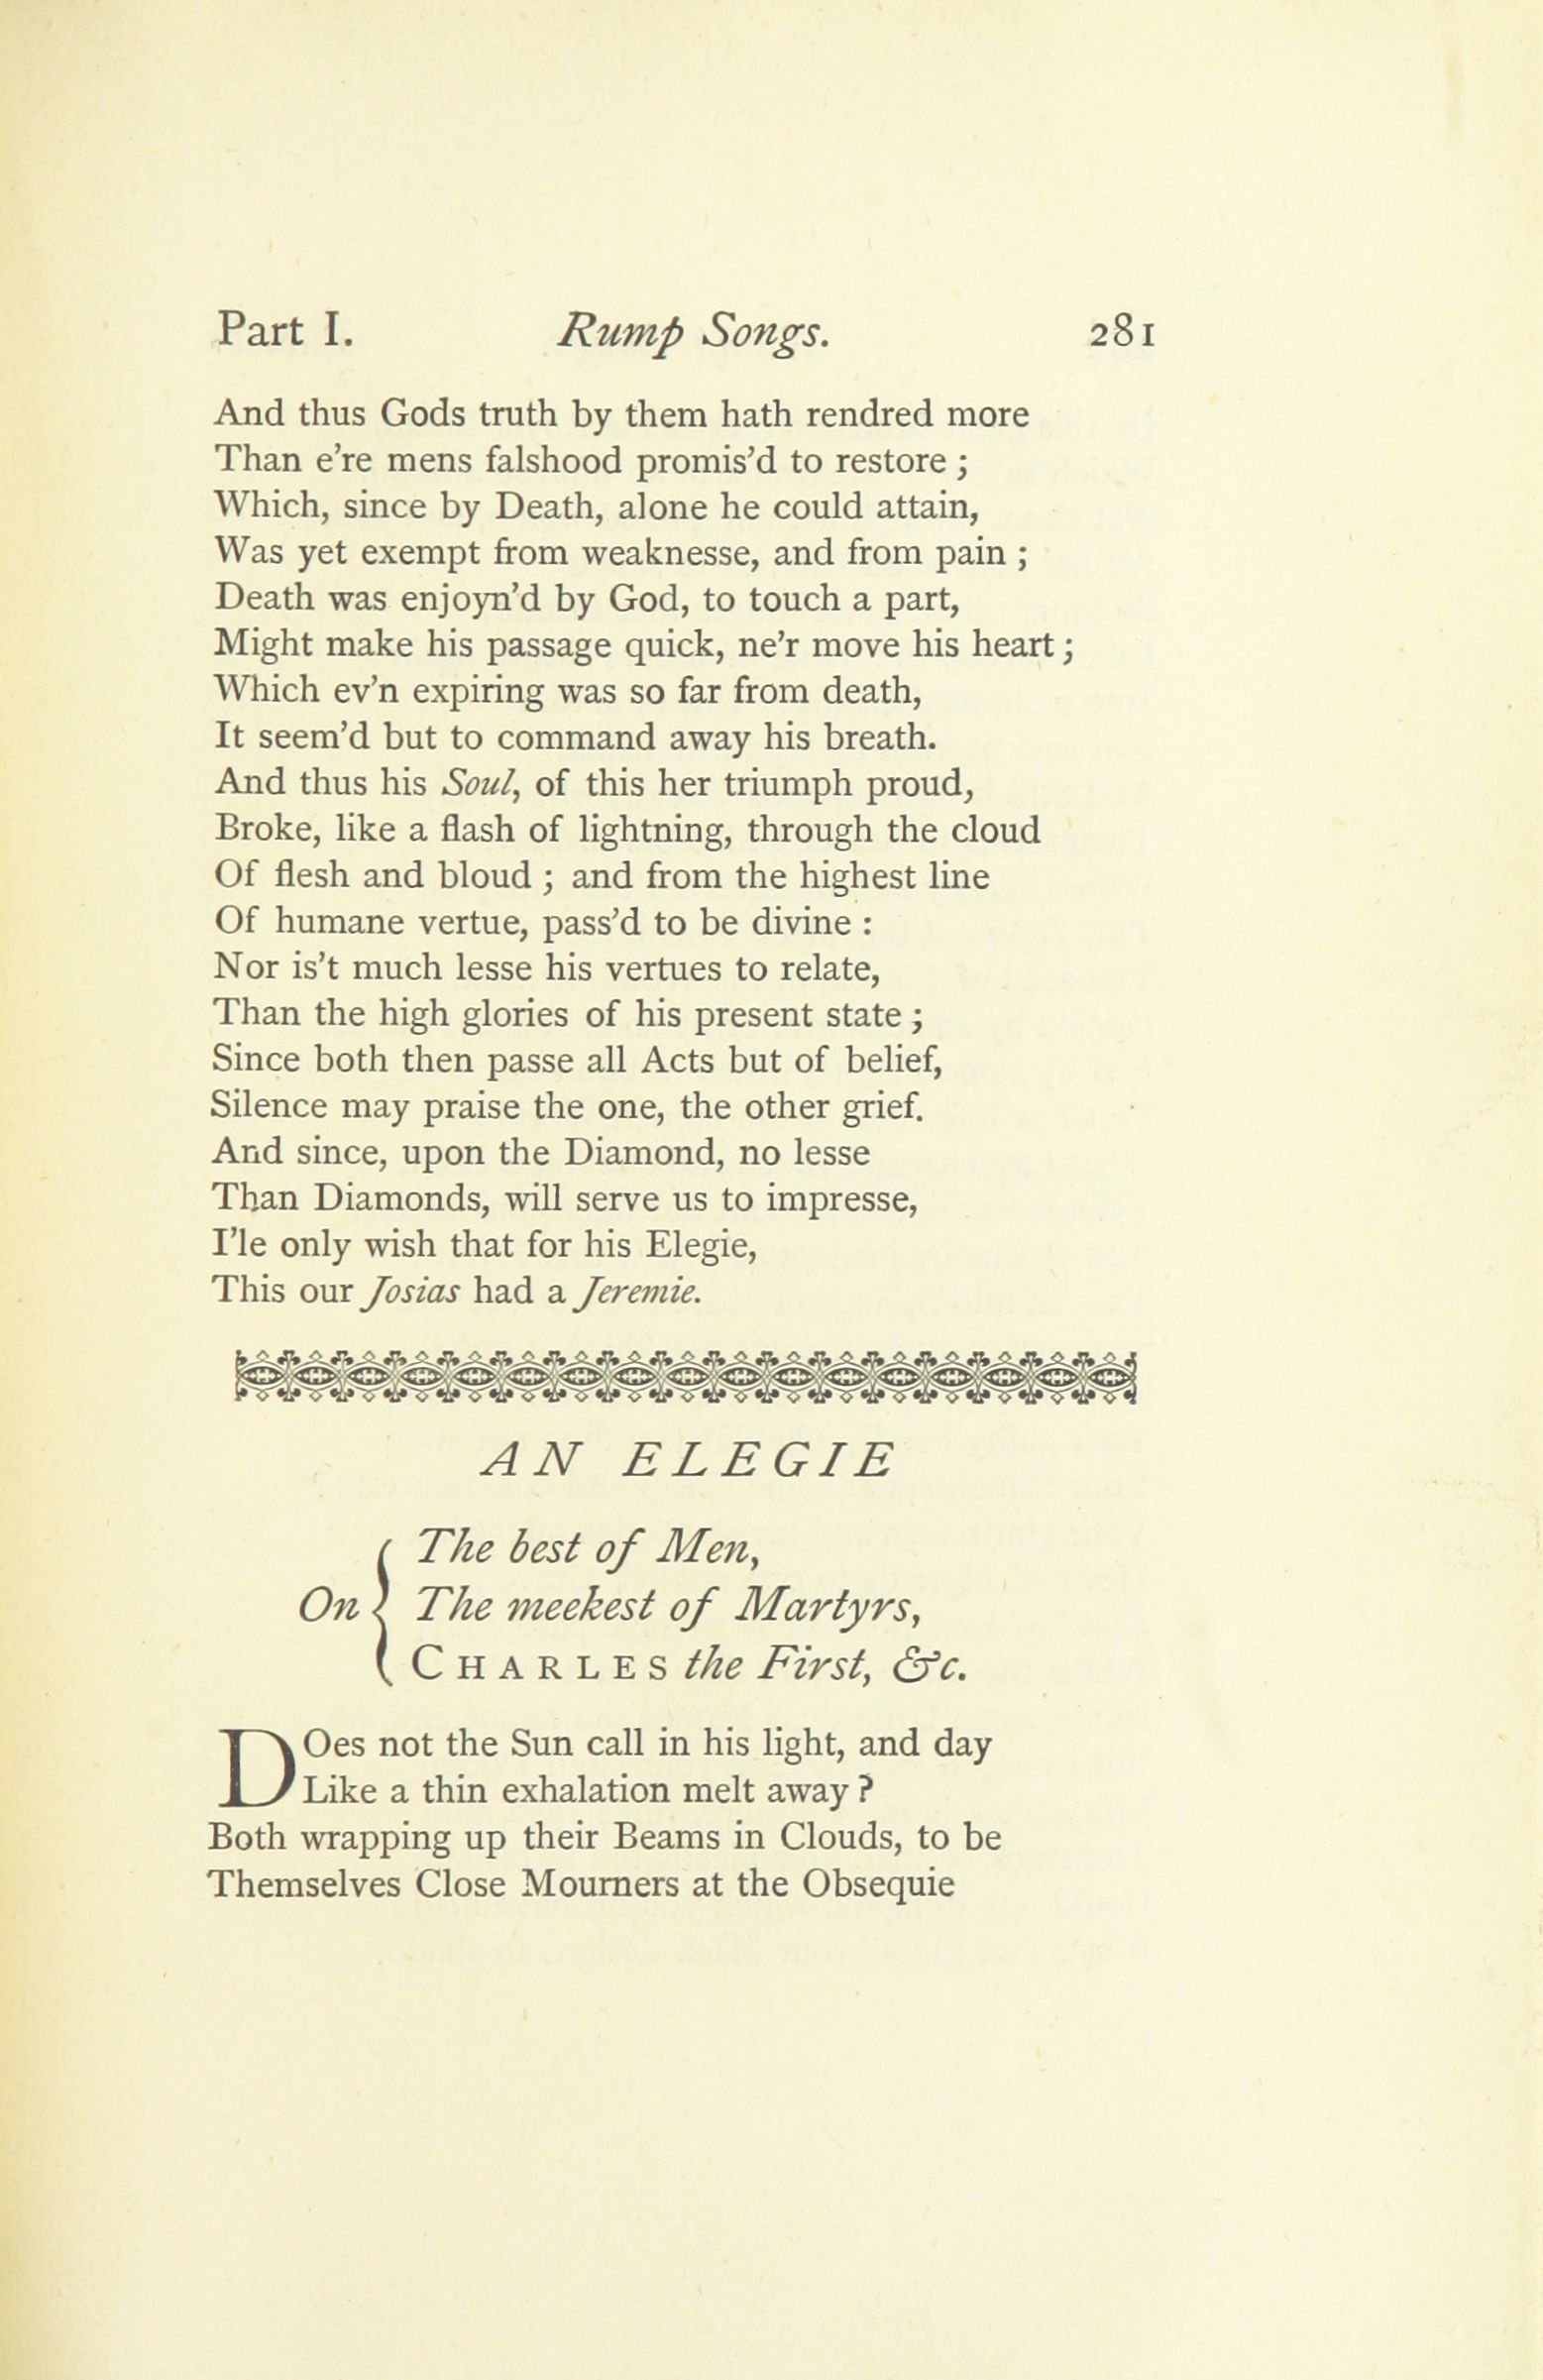 Part I. Rump Songs. 281
And thus Gods truth by them hath rendred more
Than e're mens falshood promis'd to restore ;
Which, since by Death, alone he could attain,
Was yet exempt from weaknesse, and from pain ;
Death was enjoyn'd by God, to touch a part,
Might make his passage quick, ne'r move his heart ;
Which ev'n expiring was so far from death,
It seem'd but to command away his breath.
And thus his Soul, of this her triumph proud,
Broke, like a flash of lightning, through the cloud
Of flesh and bloud ; and from the highest line
Of humane vertue, pass'd to be divine :
Nor is't much lesse his vertues to relate,
Than the high glories of his present state ;
Since both then passe all Acts but of belief,
Silence may praise the one, the other grief.
And since, upon the Diamond, no lesse
Than Diamonds, will serve us to impresse,
I'le only wish that for his Elegie,
This our Josias had a Jeremie.
AN ELEGIE
The best of Men,
On { The meekest of Martyrs,
CHARLES the First, &c.
DOes not the Sun call in his light, and day
Like a thin exhalation melt away ?
Both wrapping up their Beams in Clouds, to be
Themselves Close Mourners at the Obsequie